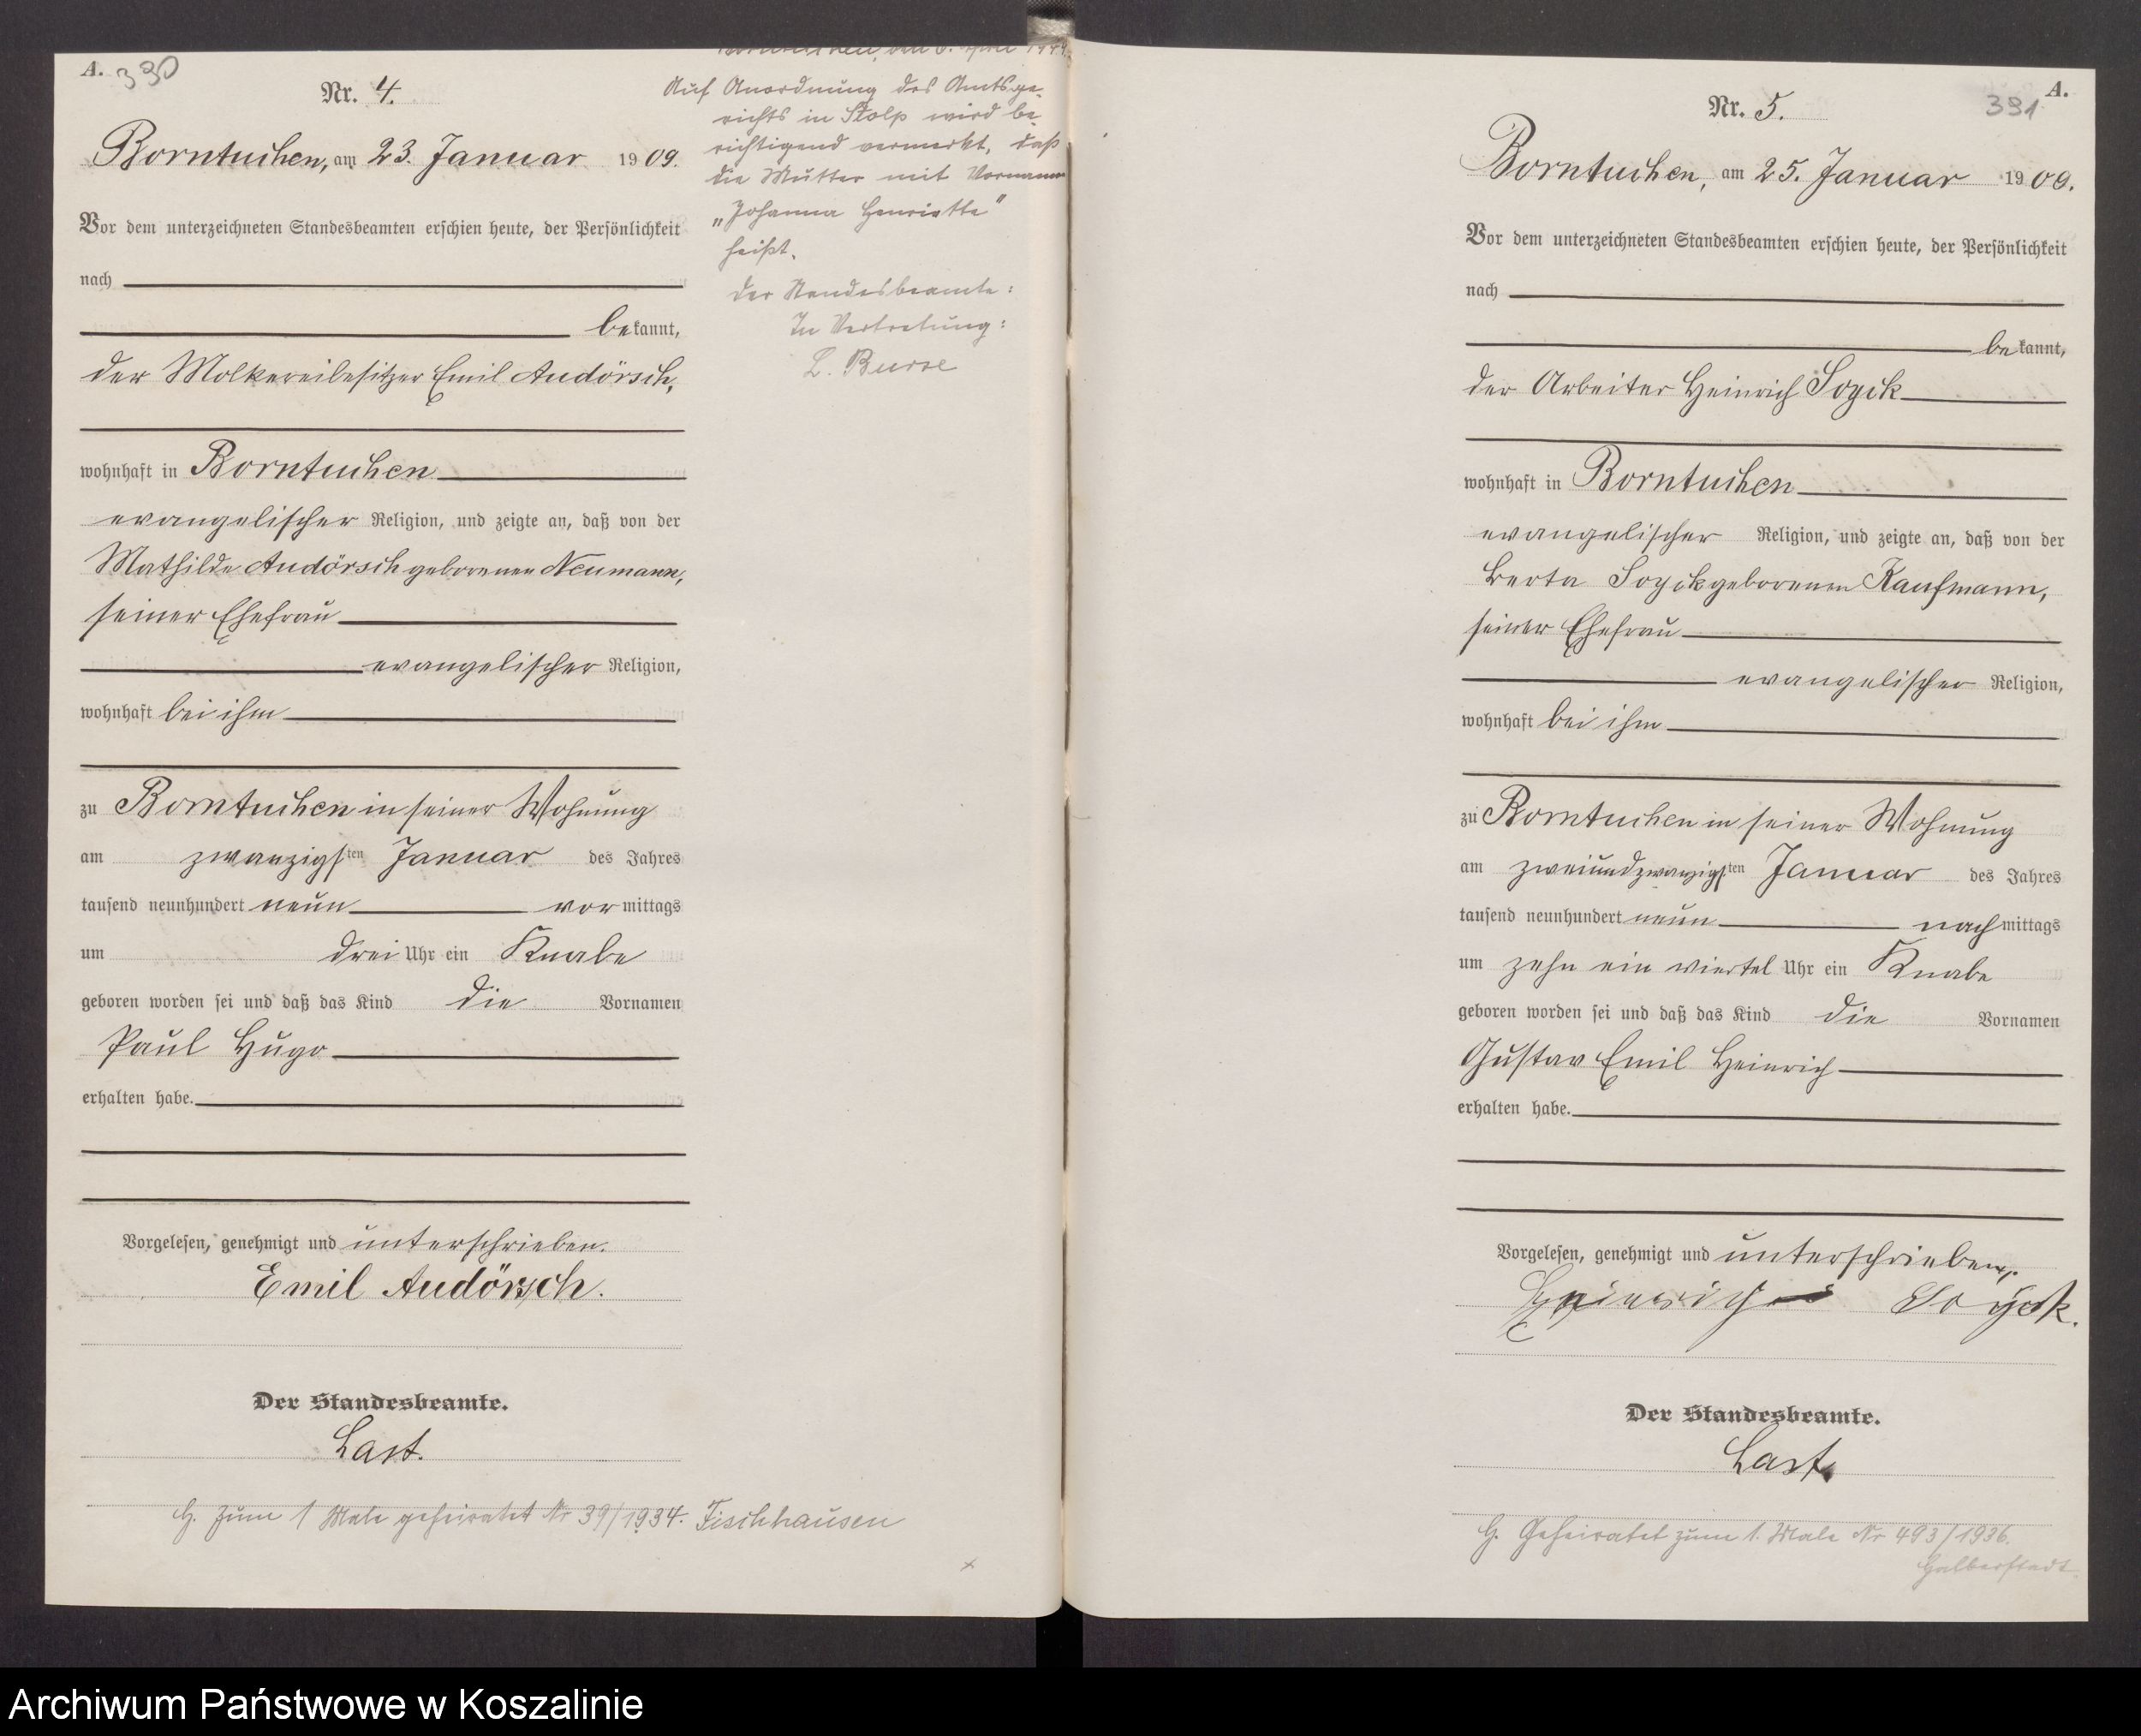 A. 330
Nr. 4.
Borntuchen, am 23. Januar 1909.
Vor dem unterzeichneten Standesbeamten erschien heute, der Persönlichkeit
nach
bekannt,
der Molkereibesitzer Emil Audörsch,
wohnhaft in Borntuchen
evangelischer Religion, und zeigte an, daß von der
Mathilde Audörsch geborenen Neumann,
seiner Ehefrau
evangelischer Religion,
wohnhaft bei ihm
zu Borntuchen in seiner Wohnung
am zwanzigsten Januar des Jahres
tausend neunhundert neun vormittags
um drei Uhr ein Knabe
geboren worden sei und daß das Kind die Vornamen
Paul Hugo
erhalten habe.
Vorgelesen, genehmigt und unterschrieben.
Emil Audörsch.
Der Standesbeamte.
Last.
H. Zum 1 Male geheiratet Nr 39/1934. Fischhausen
Borntuchen, den April
Auf Anordnung des Amtsge-
richts in Stolp wird be-
richtigend vermerkt, daß
die Mutter mit Vorname
„Johanna Henriette"
heißt.
Der Standesbeamte:
In Vertretung:
L. Burse
A.
391
Nr. 5.
Borntuchen, am 25. Januar 1909.
Vor dem unterzeichneten Standesbeamten erschien heute, der Persönlichkeit
nach
bekannt,
der Arbeiter Heinrich Soyck
wohnhaft in Borntuchen
evangelischer Religion, und zeigte an, daß von der
Berta Soyck geborenen Kaufmann,
seiner Ehefrau
evangelischer Religion,
wohnhaft bei ihm
zu Borntuchen in seiner Wohnung
am zweiundzwanzigsten Januar des Jahres
tausend neunhundert neun nachmittags
um zehn ein viertel Uhr ein Knabe
geboren worden sei und daß das Kind die Vornamen
Gustav Emil Heinrich
erhalten habe.
Vorgelesen, genehmigt und unterschrieben.
Heinrich Soyck.
Der Standesbeamte.
Last
H. Geheiratet zum 1. Male Nr 493/1936.
Halberstadt.
Archiwum Państwowe w Koszalinie